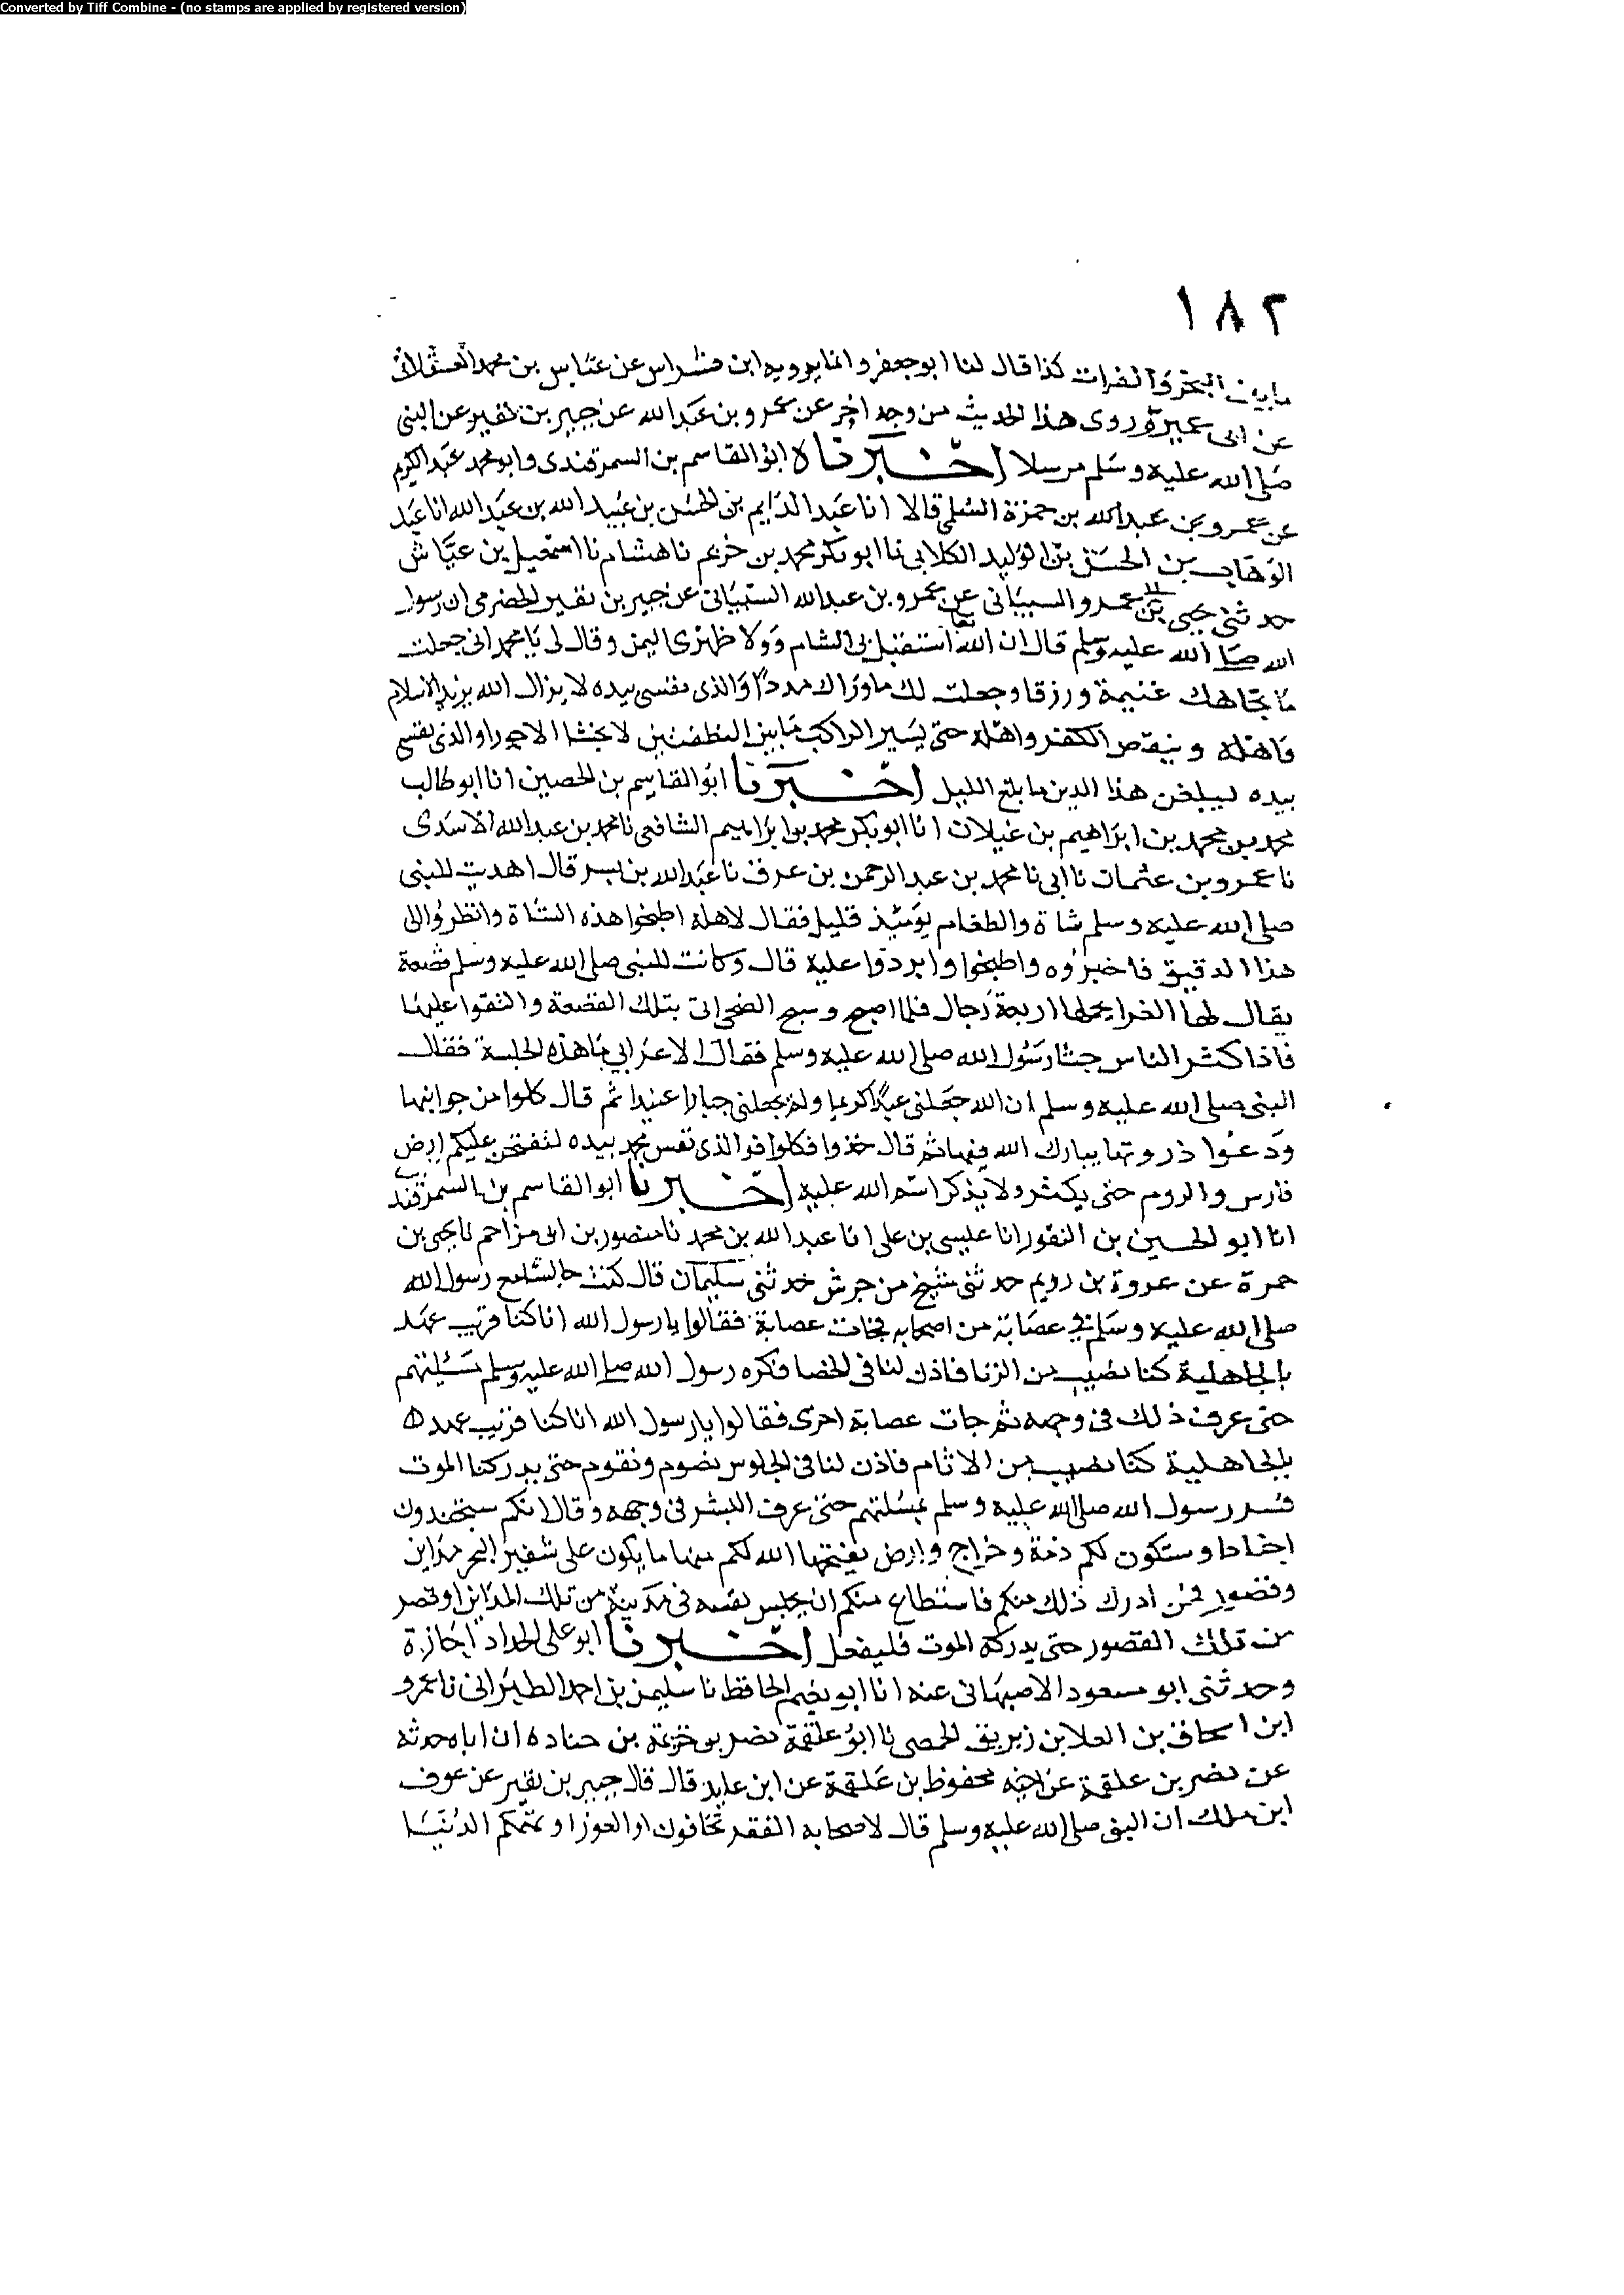 Converted by Tiff Combine - (no stamps are applied by registered version)
١٨٢
مابين البحر والفرات كذا قال لنا ابو جعفر وانما يرويه ابن فراس عن عباس بن محمد العسقلاني
عن ابي عميرة روى هذا الحديث من وجه اخر عن عمرو بن عبد الله عن جبير بن نفير عن النبي
صلى الله عليه وسلم مرسلا اخبرناه ابو القاسم بن السمرقندى وابو محمد عبد الكريم
عن عمرو بن عبد الله بن حمزة السلمي قالا انا عبد الدايم بن الحسن بن عبيد الله بن عبد الله انا عبد
الوهاب بن الحسن بن الوليد الكلابي نا ابو بكر محمد بن خريم نا هشام نا اسمعيل بن عياش
حدثني يحيى بن عمرو السيباني عن عمرو بن عبد الله السيباني عن جبير بن نفير الحضرمي ان رسول
الله صلى الله عليه وسلم قال ان الله استقبل بي الشام وولا ظهرى اليمن وقال لي يا محمد اني جعلت
ما تجاهك غنيمة ورزقا وجعلت لك ما وراك مددا والذى نفسى بيده لا يزال الله يزيد الاسلام
واهله وينقص الكفر واهله حتى يسير الراكب ما بين النطفتين لا يخشا الا جورا والذى نفسى
بيده ليبلغن هذا الدين ما بلغ الليل اخبرنا ابو القاسم بن الحصين انا ابو طالب
محمد بن محمد بن ابراهيم بن غيلان انا ابو بكر محمد بن ابراهيم الشافعي نا محمد بن عبد الله الاسدى
نا عمرو بن عثمان نا ابي نا محمد بن عبد الرحمن بن عرف نا عبد الله بن بسر قال اهديت للنبي
صلى الله عليه وسلم شاة والطعام يوميذ قليل فقال لاهله اطبخوا هذه الشاة وانظروا الى
هذا الدقيق فاخبزوه واطبخوا واثردوا عليه قال وكانت للنبي صلى الله عليه وسلم قصعة
يقال لها الغرا يحملها اربعة رجال فلما اصبح وسبح الضحى اتى بتلك القصعة والتقوا عليها
فاذا كثر الناس جثا رسول الله صلى الله عليه وسلم فقال الاعرابي ما هذه الجلسة فقال
النبي صلى الله عليه وسلم ان الله جعلني عبدا كريما ولم يجعلني جبارا عنيدا ثم قال كلوا من جوانبها
ودعوا ذروتها يبارك الله فيها ثم قال خذوا فكلوا فوالذى نفس محمد بيده لتفتحن عليكم ارض
فارس والروم حتى يكثر ولا يذكر اسم الله عليه اخبرنا ابو القاسم بن السمرقندي
انا ابو الحسين بن النقور انا عيسى بن على انا عبد الله بن محمد نا منصور بن ابي مزاحم نا يحيى بن
حمزة عن عروة بن رويم حدثني شيخ من جرش حدثني سليمان قال كنت جالسا مع رسول الله
صلى الله عليه وسلم في عصابة من اصحابه فجات عصابة فقالوا يا رسول الله انا كنا قريب عهد
بالجاهلية كنا نصيب من الزنا فاذن لنا في الخصا فكره رسول الله صلى الله عليه وسلم مسئلتهم
حتى عرف ذلك في وجهه ثم جات عصابة اخرى فقالوا يا رسول الله انا كنا قريب عهد
بالجاهلية كنا نصيب من الاثام فاذن لنا في الجلوس نصوم ونقوم حتى يدركنا الموت
فسر رسول الله صلى الله عليه وسلم بمسئلتهم حتى عرف البشر في وجهه وقال انكم ستجندون
اجنادا وستكون لكم ذمة وخراج وارض يفتحها الله لكم منها ما يكون على شفير البحر مداين
وقصور فمن ادرك ذلك منكم فاستطاع منكم ان يحبس نفسه في مدينة من تلك المداين او قصر
من تلك القصور حتى يدركه الموت فليفعل اخبرنا ابو على الحداد اجازة
وحدثني ابو مسعود الاصبهاني عنه انا ابو نعيم الحافظ نا سليمن بن احمد الطبراني نا عمرو
ابن اسحاق بن العلا بن زبريق الحمصي نا ابو علقمة نصر بن خزيمة بن جناده ان اباه حدثه
عن نصر بن علقمة عن اخيه محفوظ بن علقمة عن ابن عايذ قال قال جبير بن نفير عن عوف
ابن ملك ان النبي صلى الله عليه وسلم قال لاصحابه الفقر تخافون او العوز او تهمكم الدنيا